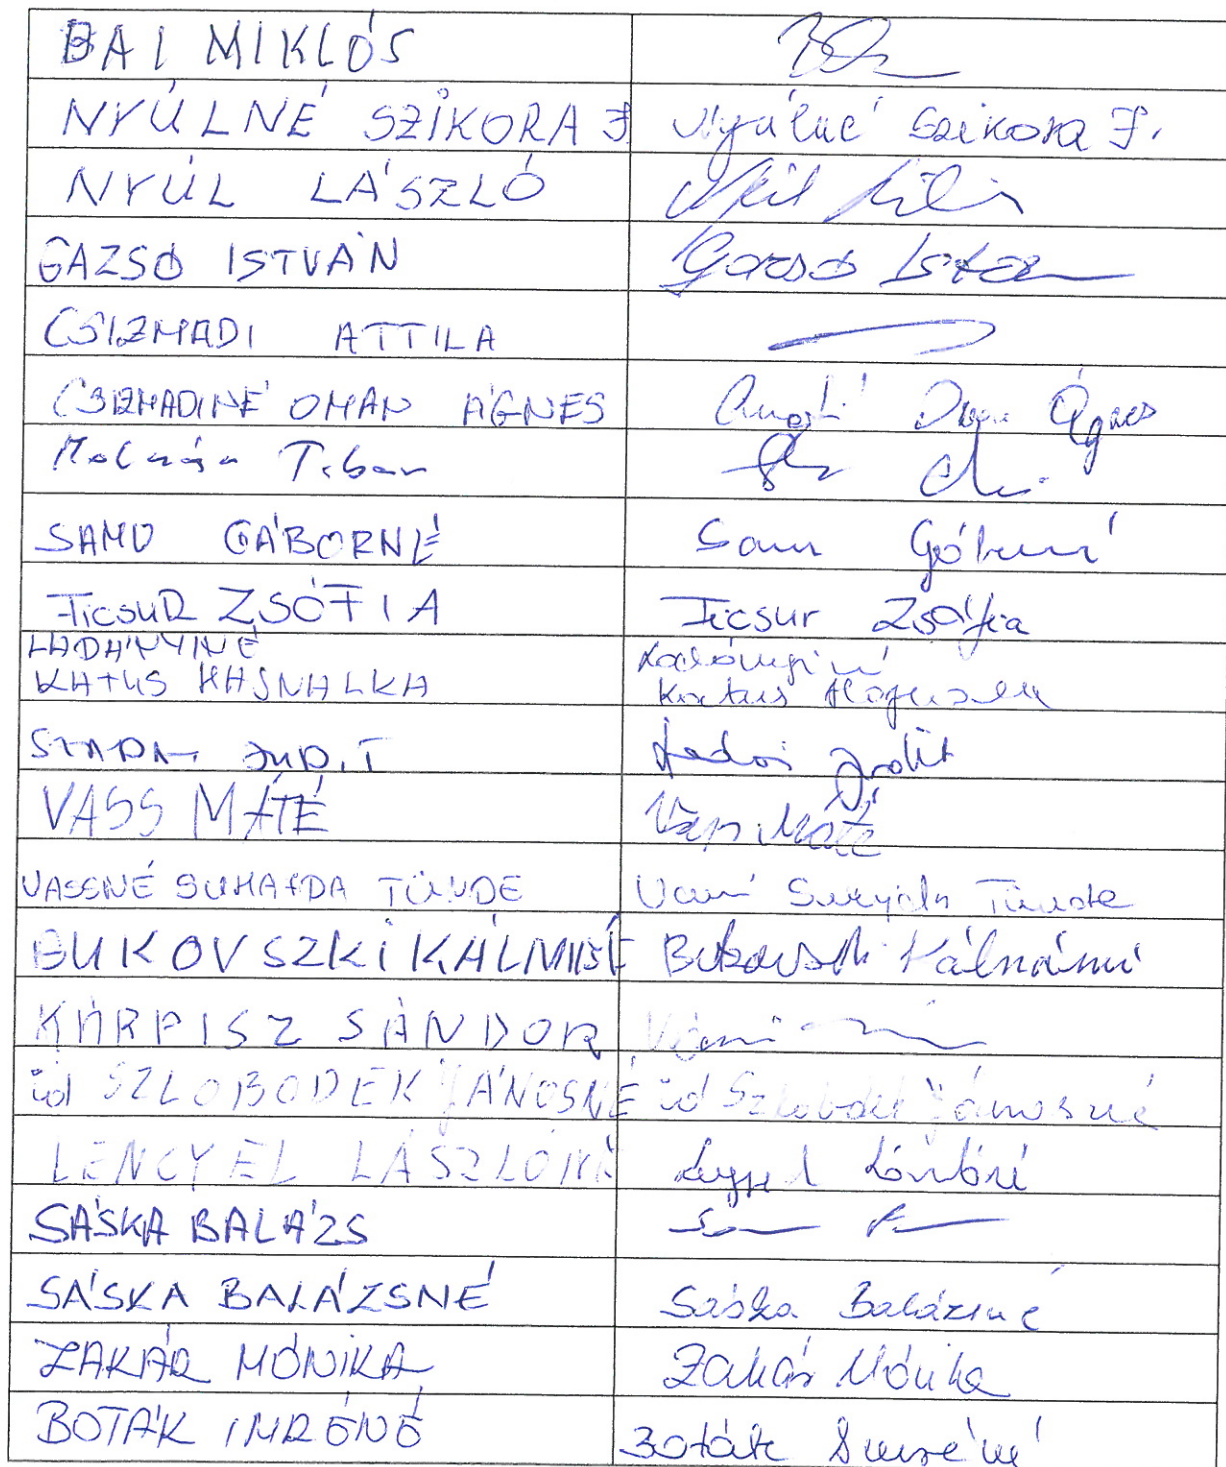 BAI MIKLÓS
NYÚLNÉ SZIKORA J Nyúlné Szikora J.
NYÚL LÁSZLÓ
GAZSÓ ISTVÁN Gazsó István
CSIZMADI ATTILA
CSIZMADINÉ OMAN ÁGNES Ágnes
Molnár Tibor
SAMU GÁBORNÉ Samu Gáborné
FICSUR ZSÓFIA Ficsur Zsófia
LADÁNYINÉ Ladányiné
KATUS HAJNALKA Katus Hajnalka
SZADAI JUDIT Szadai Judit
VASS MÁTÉ Vass Máté
VASSNÉ SUHAJDA TÜNDE Vassné Suhajda Tünde
BUKOVSZKI KÁLMÁNÉ Bukovszki Kálmánné
KÁRPISZ SÁNDOR
id SZLOBODEK JÁNOSNÉ id Szlobodek Jánosné
LENGYEL LÁSZLÓNÉ Lengyel Lászlóné
SÁSKA BALÁZS
SÁSKA BALÁZSNÉ Sáska Balázsné
ZAKÁR MÓNIKA Zakár Mónika
BOTÁK IMRÉNÉ Boták Imréné